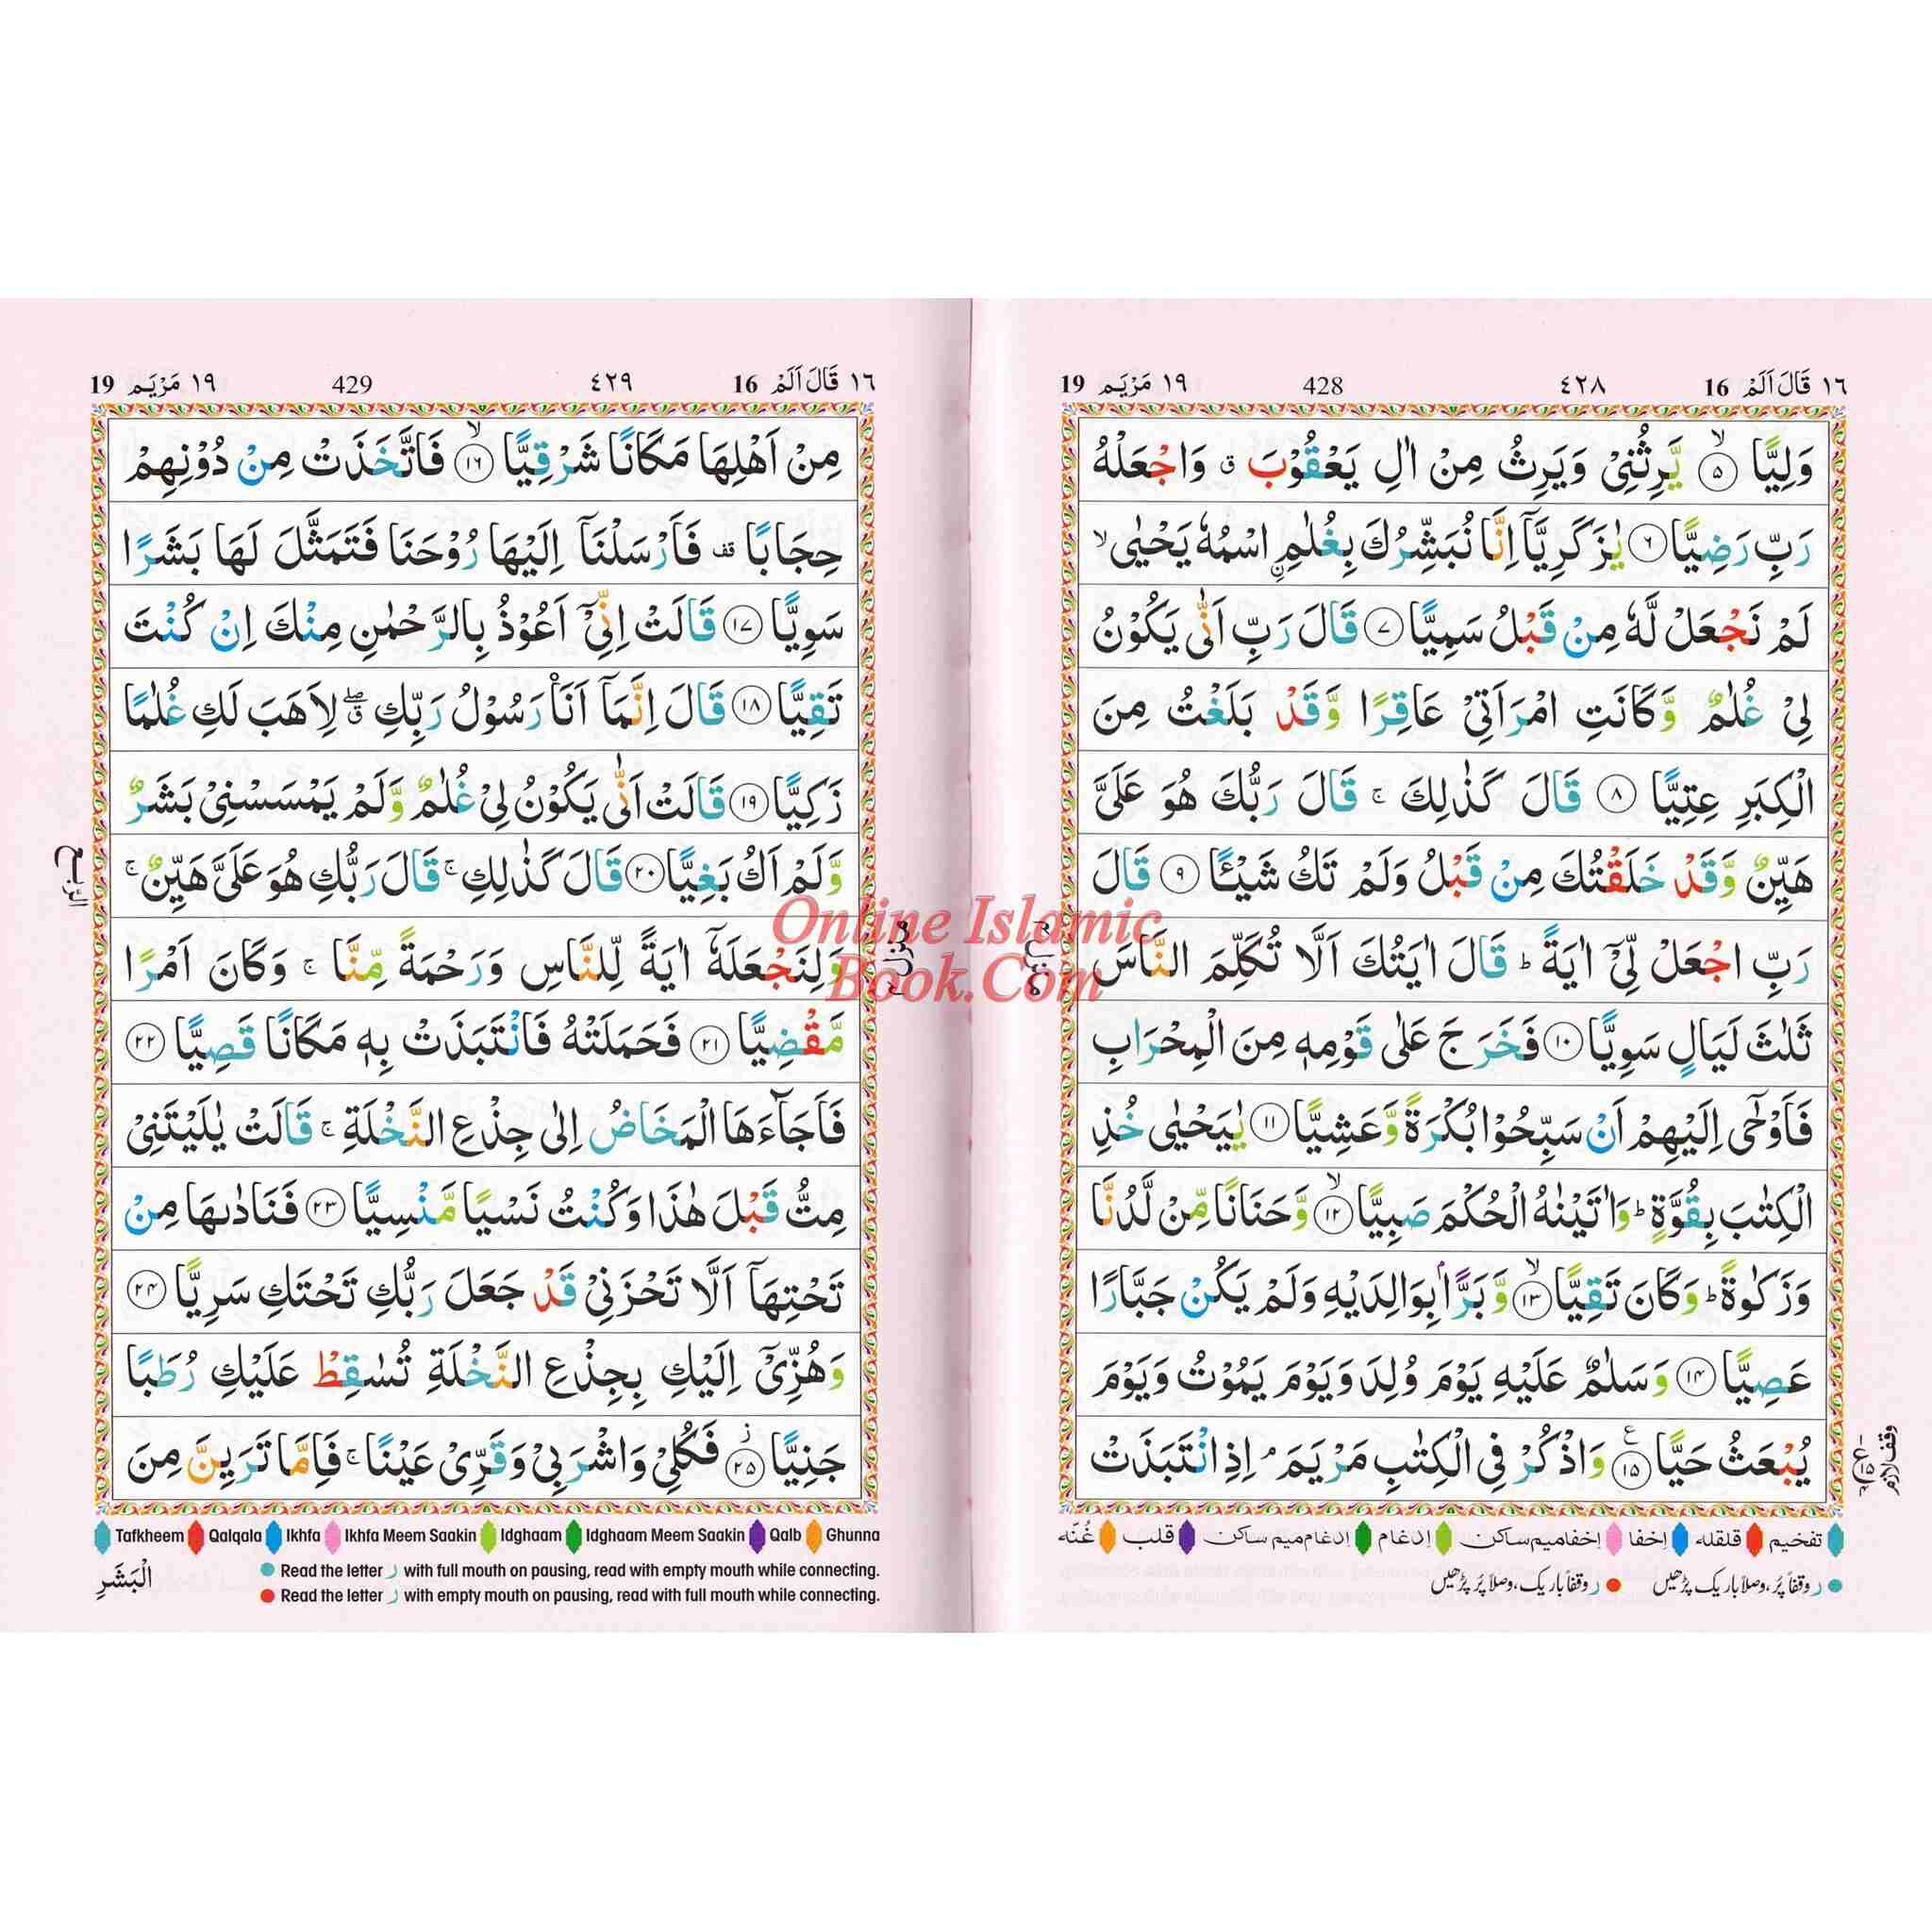 ١٦ قَالَ اَلَمْ 16 ٤٢٨ 428 ١٩ مَرْيَم 19
وَلِيًّا ۙ ٥ يَّرِثُنِيْ وَيَرِثُ مِنْ اٰلِ يَعْقُوْبَ ق وَاجْعَلْهُ
رَبِّ رَضِيًّا ٦ يٰزَكَرِيَّآ اِنَّا نُبَشِّرُكَ بِغُلٰمِ ۨاسْمُهٗ يَحْيٰى ۙ
لَمْ نَجْعَلْ لَّهٗ مِنْ قَبْلُ سَمِيًّا ٧ قَالَ رَبِّ اَنّٰى يَكُوْنُ
لِيْ غُلٰمٌ وَّكَانَتِ امْرَاَتِيْ عَاقِرًا وَّقَدْ بَلَغْتُ مِنَ
الْكِبَرِ عِتِيًّا ٨ قَالَ كَذٰلِكَ ۚ قَالَ رَبُّكَ هُوَ عَلَيَّ
هَيِّنٌ وَّقَدْ خَلَقْتُكَ مِنْ قَبْلُ وَلَمْ تَكُ شَيْـًٔا ٩ قَالَ
رَبِّ اجْعَلْ لِّيْٓ اٰيَةً ؕ قَالَ اٰيَتُكَ اَلَّا تُكَلِّمَ النَّاسَ
ثَلٰثَ لَيَالٍ سَوِيًّا ١٠ فَخَرَجَ عَلٰى قَوْمِهٖ مِنَ الْمِحْرَابِ
فَاَوْحٰٓى اِلَيْهِمْ اَنْ سَبِّحُوْا بُكْرَةً وَّعَشِيًّا ١١ يٰيَحْيٰى خُذِ
الْكِتٰبَ بِقُوَّةٍ ؕ وَاٰتَيْنٰهُ الْحُكْمَ صَبِيًّا ۙ ١٢ وَّحَنَانًا مِّنْ لَّدُنَّا
وَزَكٰوةً ؕ وَكَانَ تَقِيًّا ۙ ١٣ وَّبَرًّۢا بِوَالِدَيْهِ وَلَمْ يَكُنْ جَبَّارًا
عَصِيًّا ١٤ وَسَلٰمٌ عَلَيْهِ يَوْمَ وُلِدَ وَيَوْمَ يَمُوْتُ وَيَوْمَ
يُبْعَثُ حَيًّا ع ١٥ وَاذْكُرْ فِي الْكِتٰبِ مَرْيَمَ ۘ اِذِ انْتَبَذَتْ
وقف لازم
تفخيم قلقله اِخفا اِخفا ميم ساكن اِدغام اِدغام ميم ساكن قلب غُنّه
ر وقفاً پُر، وصلاً باریک پڑھیں ر وقفاً باریک، وصلاً پُر پڑھیں
١٦ قَالَ اَلَمْ 16 ٤٢٩ 429 ١٩ مَرْيَم 19
مِنْ اَهْلِهَا مَكَانًا شَرْقِيًّا ۙ ١٦ فَاتَّخَذَتْ مِنْ دُوْنِهِمْ
حِجَابًا قف فَاَرْسَلْنَآ اِلَيْهَا رُوْحَنَا فَتَمَثَّلَ لَهَا بَشَرًا
سَوِيًّا ١٧ قَالَتْ اِنِّيْٓ اَعُوْذُ بِالرَّحْمٰنِ مِنْكَ اِنْ كُنْتَ
تَقِيًّا ١٨ قَالَ اِنَّمَآ اَنَا۠ رَسُوْلُ رَبِّكِ ۖق لِاَهَبَ لَكِ غُلٰمًا
زَكِيًّا ١٩ قَالَتْ اَنّٰى يَكُوْنُ لِيْ غُلٰمٌ وَّلَمْ يَمْسَسْنِيْ بَشَرٌ
وَّلَمْ اَكُ بَغِيًّا ٢٠ قَالَ كَذٰلِكِ ۚ قَالَ رَبُّكِ هُوَ عَلَيَّ هَيِّنٌ ۚ
وَلِنَجْعَلَهٗٓ اٰيَةً لِّلنَّاسِ وَرَحْمَةً مِّنَّا ۚ وَكَانَ اَمْرًا
مَّقْضِيًّا ٢١ فَحَمَلَتْهُ فَانْتَبَذَتْ بِهٖ مَكَانًا قَصِيًّا ٢٢
فَاَجَآءَهَا الْمَخَاضُ اِلٰى جِذْعِ النَّخْلَةِ ۚ قَالَتْ يٰلَيْتَنِيْ
مِتُّ قَبْلَ هٰذَا وَكُنْتُ نَسْيًا مَّنْسِيًّا ٢٣ فَنَادٰىهَا مِنْ
تَحْتِهَآ اَلَّا تَحْزَنِيْ قَدْ جَعَلَ رَبُّكِ تَحْتَكِ سَرِيًّا ٢٤
وَهُزِّيْٓ اِلَيْكِ بِجِذْعِ النَّخْلَةِ تُسٰقِطْ عَلَيْكِ رُطَبًا
جَنِيًّا ز ٢٥ فَكُلِيْ وَاشْرَبِيْ وَقَرِّيْ عَيْنًا ۚ فَاِمَّا تَرَيِنَّ مِنَ
Tafkheem Qalqala Ikhfa Ikhfa Meem Saakin Idghaam Idghaam Meem Saakin Qalb Ghunna
Read the letter ر with full mouth on pausing, read with empty mouth while connecting.
Read the letter ر with empty mouth on pausing, read with full mouth while connecting.
الْبَشَرِ
Online Islamic
Book.Com